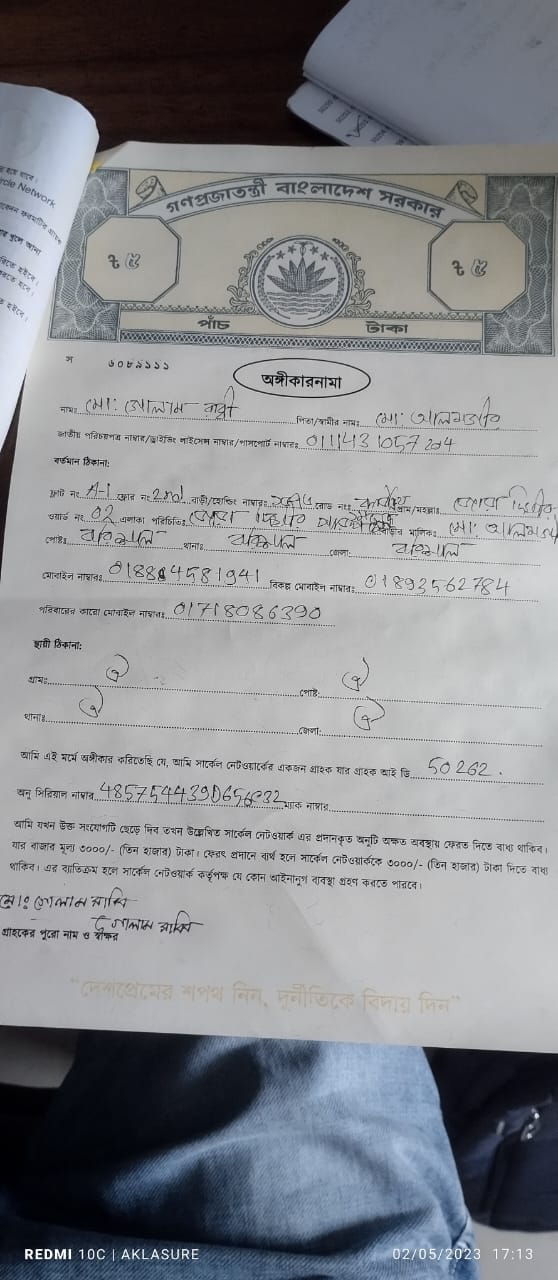 rcle Network
গণপ্রজাতন্ত্রী বাংলাদেশ সরকার
৳ ৫
৳ ৫
পাঁচ টাকা
অঙ্গীকারনামা
নামঃ মোঃ গোলাম রাব্বী পিতা/স্বামীর নামঃ মোঃ আলমগীর
জাতীয় পরিচয়পত্র নাম্বার/ড্রাইভিং লাইসেন্স নাম্বার/পাসপোর্ট নাম্বারঃ
বর্তমান ঠিকানা:
ফ্লাট নং A-1 ফ্লোর নং 2nd বাড়ী/হোল্ডিং নাম্বারঃ রোড নংঃ গ্রাম/মহল্লাঃ
ওয়ার্ড নং 02 এলাকা পরিচিতিঃ বাড়ীর মালিকঃ মোঃ আলমগীর
পোষ্টঃ বরিশাল থানাঃ বরিশাল জেলা: বরিশাল
মোবাইল নাম্বারঃ বিকল্প মোবাইল নাম্বারঃ 01893562784
পরিবারের কারো মোবাইল নাম্বারঃ 01718086390
স্থায়ী ঠিকানা:
গ্রামঃ ঐ পোষ্টঃ ঐ
থানাঃ ঐ জেলা: ঐ
আমি এই মর্মে অঙ্গীকার করিতেছি যে, আমি সার্কেল নেটওয়ার্কের একজন গ্রাহক যার গ্রাহক আই ডি 50262.
অনু সিরিয়াল নাম্বার ম্যাক নাম্বার
আমি যখন উক্ত সংযোগটি ছেড়ে দিব তখন উল্লেখিত সার্কেল নেটওয়ার্ক এর প্রদানকৃত অনুটি অক্ষত অবস্থায় ফেরত দিতে বাধ্য থাকিব।
যার বাজার মূল্য ৩০০০/- (তিন হাজার) টাকা। ফেরৎ প্রদানে ব্যর্থ হলে সার্কেল নেটওয়ার্ককে ৩০০০/- (তিন হাজার) টাকা দিতে বাধ্য
থাকিব। এর ব্যতিক্রম হলে সার্কেল নেটওয়ার্ক কর্তৃপক্ষ যে কোন আইনানুগ ব্যবস্থা গ্রহণ করতে পারবে।
মোঃ গোলাম রাব্বি
গোলাম রাব্বি
গ্রাহকের পুরো নাম ও স্বাক্ষর
"দেশপ্রেমের শপথ নিন, দুর্নীতিকে বিদায় দিন"
REDMI 10C | AKLASURE 02/05/2023 17:13